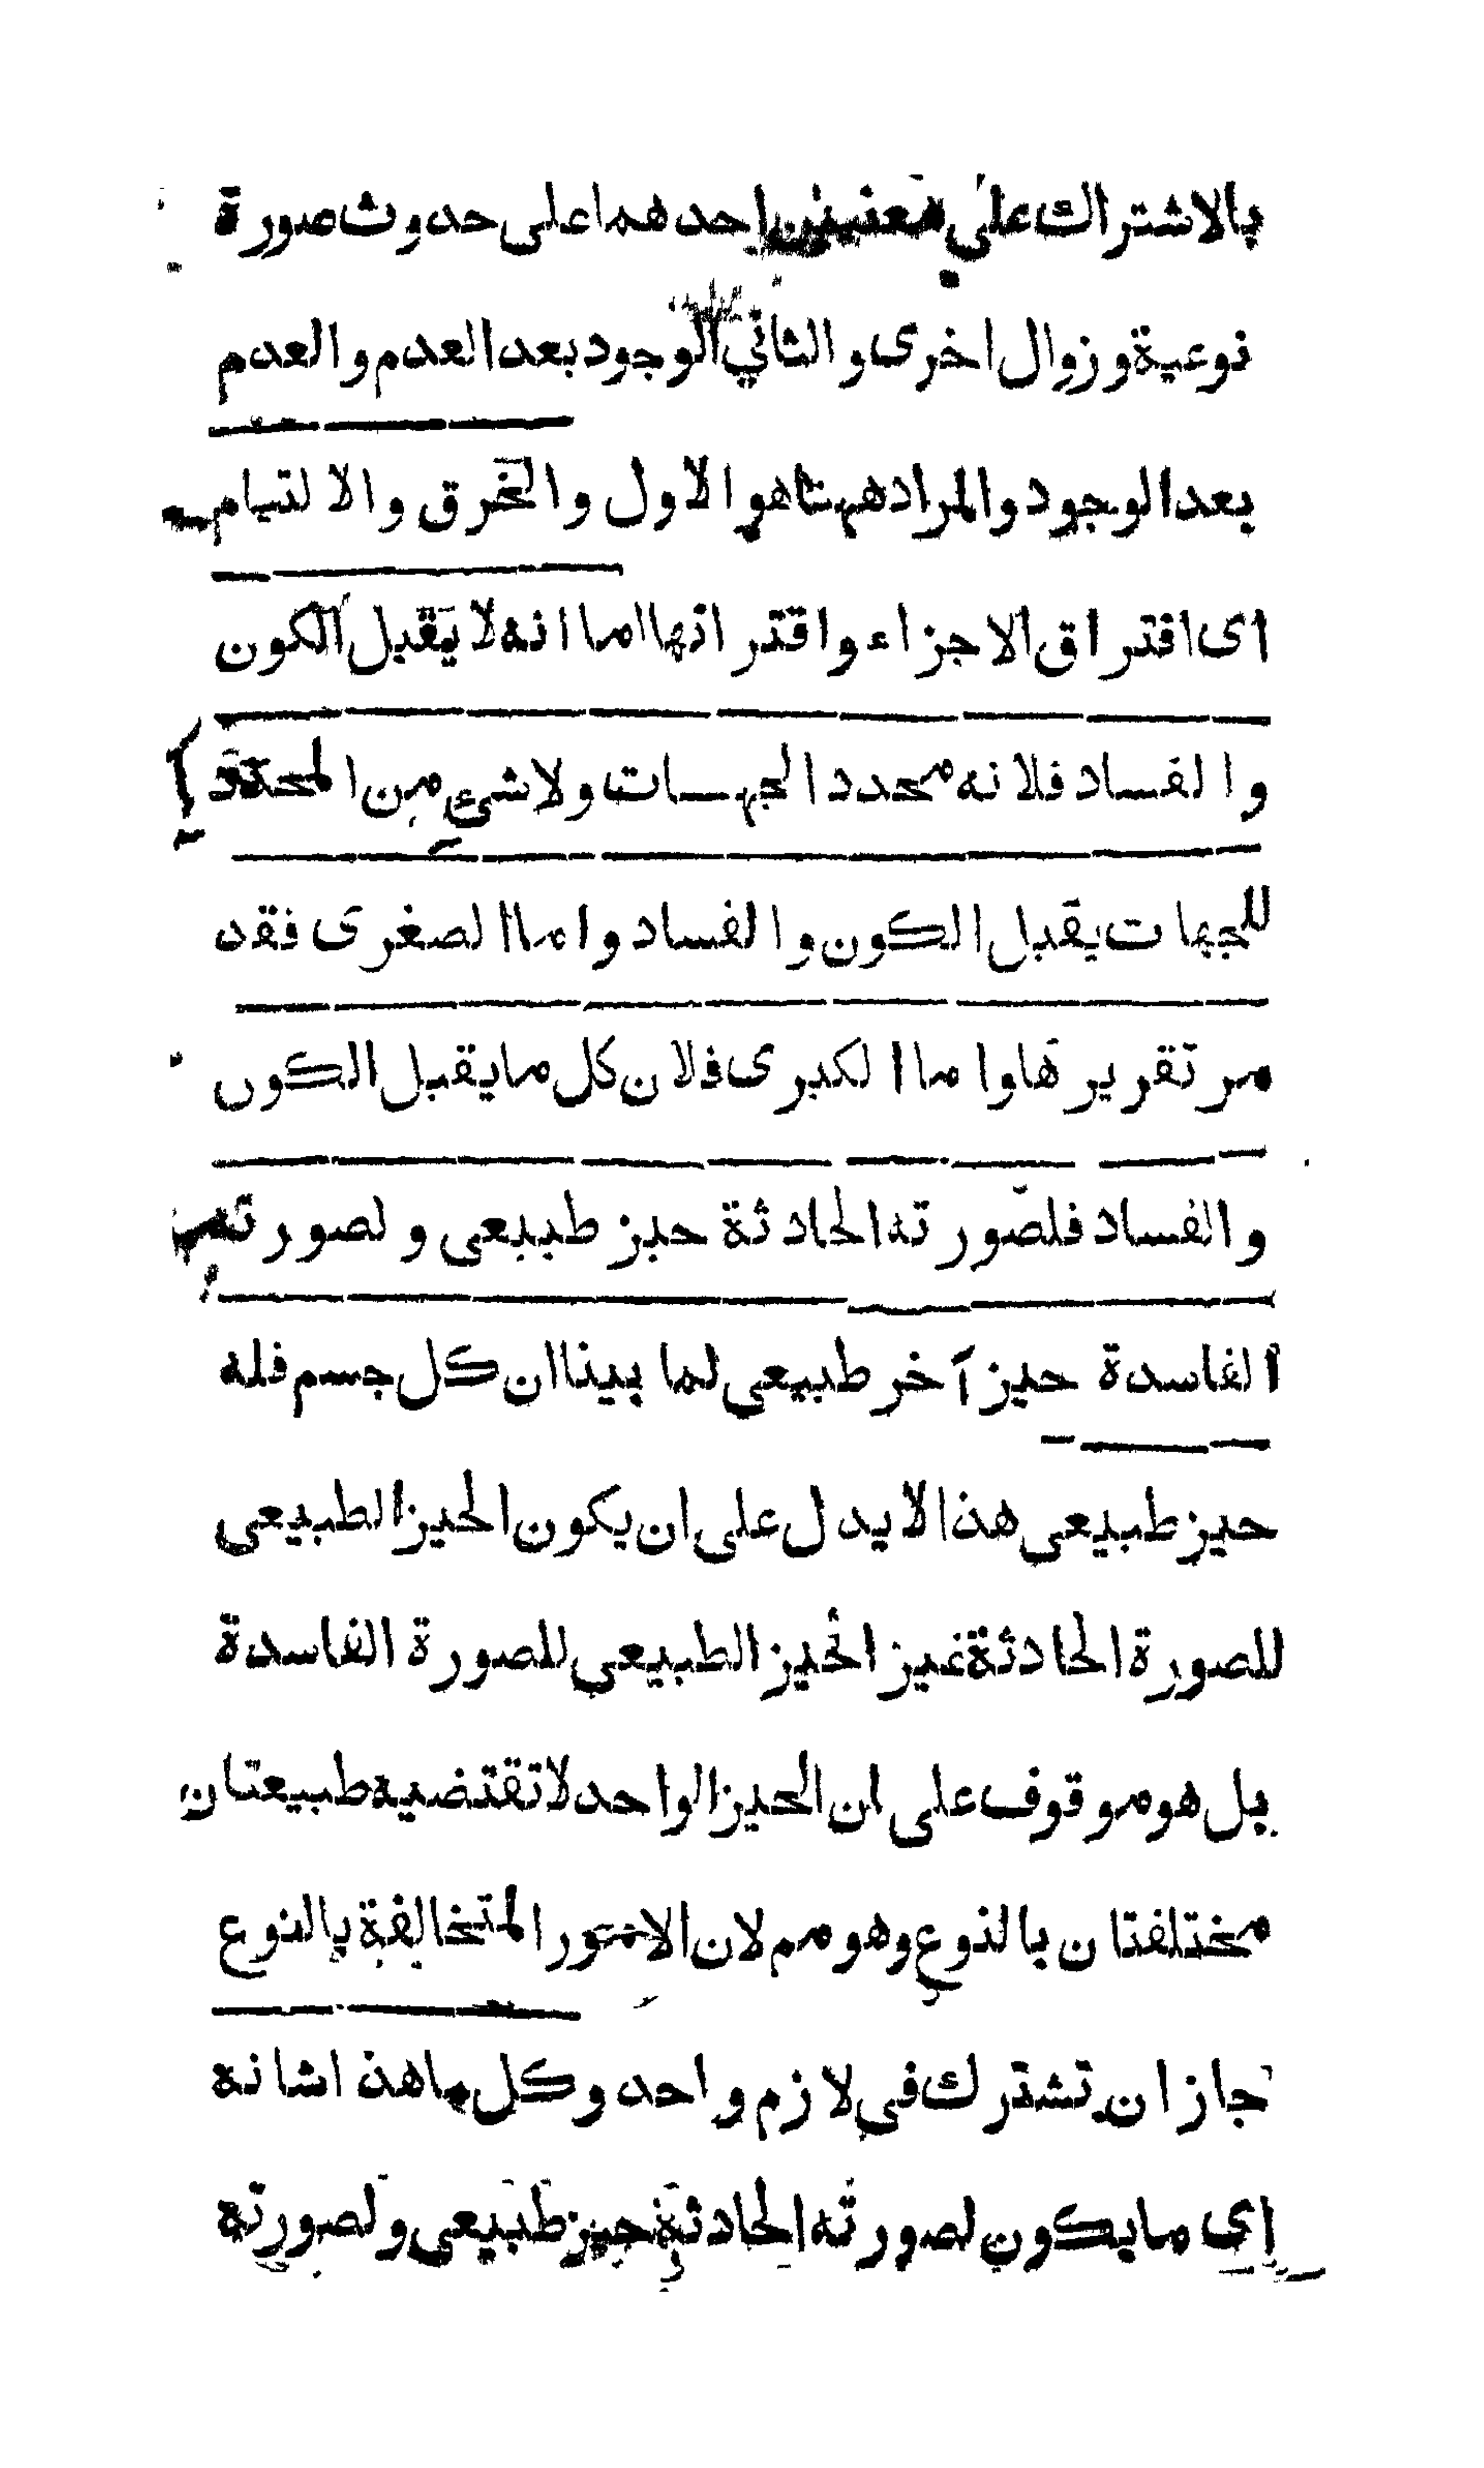 بالاشتراك على معنيين احدهما على حدوث صورة
نوعية وزوال اخرى والثاني الوجود بعد العدم والعدم
بعد الوجود والمراد ههنا هو الاول والخرق والالتيام
اى افتراق الاجزاء واقترانها اما انه لا يقبل الكون
والفساد فلانه محدد الجهات ولا شئ من المحدد
للجهات يقبل الكون والفساد واما الصغرى فقد
مر تقريرها واما الكبرى فلان كل ما يقبل الكون
والفساد فلصورته الحادثة حيز طبيعى ولصورته
الفاسدة حيز آخر طبيعى لما بينا ان كل جسم فله
حيز طبيعى هذا لا يدل على ان يكون الحيز الطبيعى
للصورة الحادثة غير الحيز الطبيعى للصورة الفاسدة
بل هو موقوف على ان الحيز الواحد لا تقتضيه طبيعتان
مختلفتان بالنوع وهو مم لان الامور المتخالفة بالنوع
جاز ان تشترك فى لازم واحد وكل ما هذا شانه
اى ما يكون لصورته الحادثة حيز طبيعى ولصورته